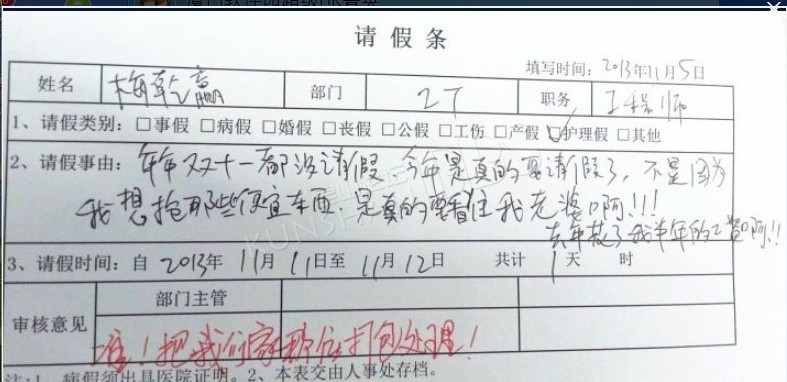 请假条
填写时间: 2013年11月5日
姓名 梅乾赢 部门 IT 职务 工程师
1、请假类别: □事假 □病假 □婚假 □丧假 □公假 □工伤 □产假 ☑护理假 □其他
2、请假事由: 年年双十一都没请假,今年是真的要请假了,不是因为
我想抢那些便宜东西,是真的要看住我老婆啊!!!
去年花了我半年的工资啊!!
3、请假时间: 自 2013年 11月 11日至 11月 12日 共计 1天 时
审核意见 部门主管
准!把我们家那位打包处理!
注:1、病假须出具医院证明。2、本表交由人事处存档。